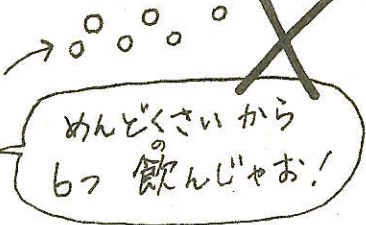 めんどくさいから
6つ飲んじゃお!
の